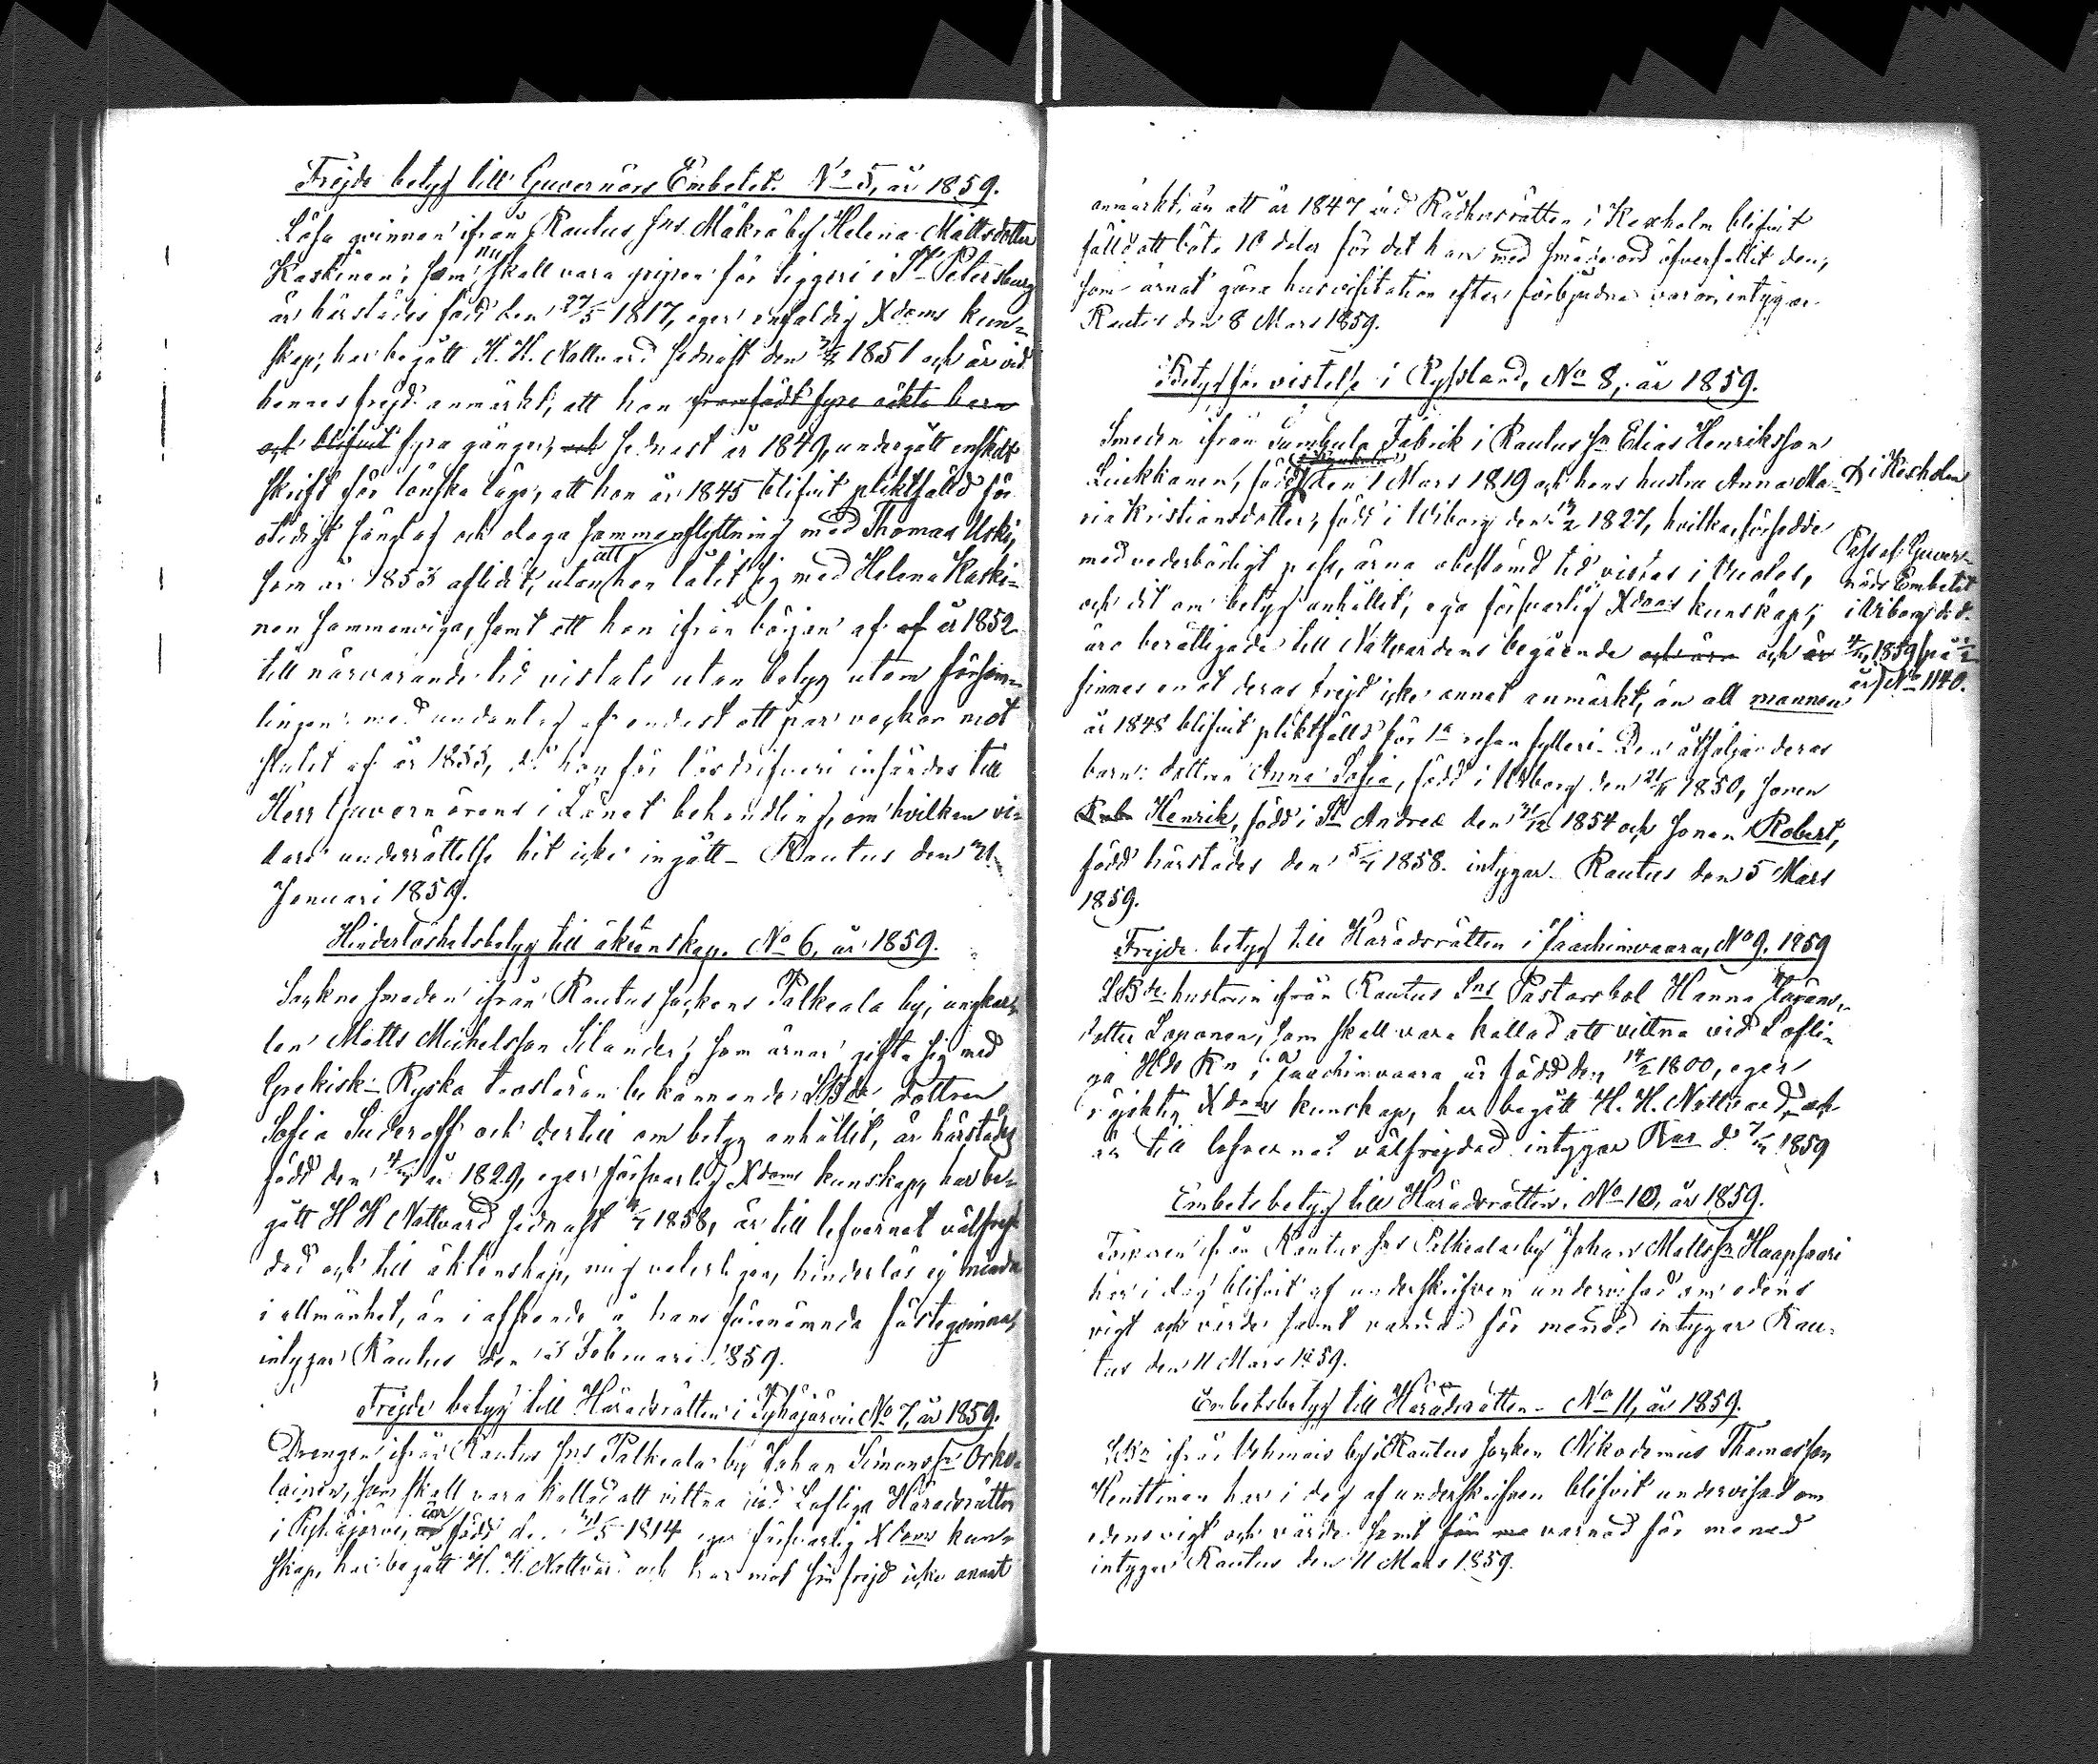 Frejde betyg till Guvernörs Embetet. No 5, år 1859.
Lösa qvinnan ifrån Rautus Sns Mäkrä by Helena Mattsdotter
Kaskinen, som nu skall vara gripen för tiggeri i St Petersburg
är härstädes född den 27/5 1817, eger enfaldig Xdoms kun-
skap, har begått H. H. Nattvard sednast den 1851 och är vid
hennes frejd anmärkt, att hon framfödt fyra oäkta barn
och blifvit fyra gånger, och sednast år 1849, undergått enskild
skrift för lönska läge, att hon år 1845 blifvit pliktfälld för
otidigt sänglag och olaga sammanflyttning med Thomas Uski,
som år 1853 aflidit, utan att han låtit sig med Helena Kaski-
nen sammanviga, samt att hon ifrån början af af år 1852
till närvarande tid vistats utan betyg utom försam-
lingen med undantag af endast ett par veckor mot
slutet af år 1855, då hon för lösdrifveri infördes till
Herr Guvernörens i Länet behandling, om hvilken vi-
dare underrättelse hit icke ingått – Rautus den 21
Januari 1859.
Hinderlöshetsbetyg till äktenskap. No 6, år 1859.
Sockne smeden ifrån Rautus sockens Palkeala by, ungkar-
len Matts Michelsson Silander, som ärnar gifta sig med
Grekisk-Ryska trosläran bekännande LBde dottren
Sofia Sideroff och dertill om betyg anhållit, är härstädes
född den år 1829, eger försvarlig Xdoms kunskap, har be-
gått H H Nattvard sednast 1858, är till lefvernet välfrej-
dad och till äktenskap, mig veterligen, hinderlös ej mindre
i allmänhet, än i afseende å hans förenämnda fästeqvinna,
intygar Rautus den Februari 1859.
Frejde betyg till Häradsrätten i Pyhäjärvi No 7, år 1859.
Drengen ifrån Rautus Sns Palkeala by Johan Simonsson Orko-
lainen, som skall vara kallad att vittna vid Lofliga Häradsrätten
i Pyhäjärvi, är född d. 1814 eger försvarlig Xdoms kun-
skap, har begått H. H. Nattvard och har mot sin frejd icke annat
anmärkt, än att år 1847 vid Rådhusrätten i Kexholm blifvit
fälld att böta 10 daler för det han med smäde ord öfverfallit den,
som ärnat göra husvisitation efter förbjudna varor, intygar
Rautus den 8 Mars 1859.
Betyg för vistelse i Ryssland, No 8, år 1859.
Smeden ifrån Sumbula Fabrik i Rautus Sn Elias Henriksson
Luikkanen, född den 1 Mars 1819 och hans hustru Anna Ma-
ria Kristiansdotter, född i Wiborg den 1827, hvilka, försedde
med vederbörligt pass, ärna obestämd tid vistas i
och dit om betyg anhållit, ega försvarlig Xdoms kunskap,
äro berättigade till Nattvardens begående och äro och är
finnes emot deras frejd icke annat anmärkt, än att mannen
år 1848 blifvit pliktfälld för 1a resan fylleri. Dem åtfölja deras
barn: dottren Anna Sofia, född i Wiborg den 1850, sonen
Rob Henrik, född i St Andreæ den 31/12 1854 och sonen Robert,
född härstädes den 1858. intygar Rautus den 5 Mars
1859.
X i Kexholm
Pass af Guver-
nörs Embetet
i Wiborg d. d.
1859 på ½
år) No 1140.
Frejde betyg till Häradsrätten i Jaachimvaara, No 9. 1859
LBde hustrun ifrån Rautus Sns Pastorsbol Hanna
dotter Loponen, som skall vara kallad att vittna vid Lofli-
ga Hds Rn i Jaachimvaara är född den 14/2 1800, eger
Xdoms kunskap, har begått H. H. Nattvard, och
är till lefvernet välfrejdad intygar Rus d. 1859
Embets betyg till Häradsrätten. No 10, år 1859.
ifrån Rautus Sns Palkeala by Johan Mattsson Haapsaari
har i dag blifvit af underskrifven undervisad om edens
vigt och värde samt varnad för mened intygar Rau-
tus den 11 Mars 1859.
Embetsbetyg till Häradsrätten – No 11, år 1859.
LBn ifrån Wehmais by i Rautus socken Nikodemus Thomasson
Henttinen har i dag af underskrifven blifvit undervisad om
edens vigt och värde samt för me varnad för mened
intygar Rautus den 11 Mars 1859.